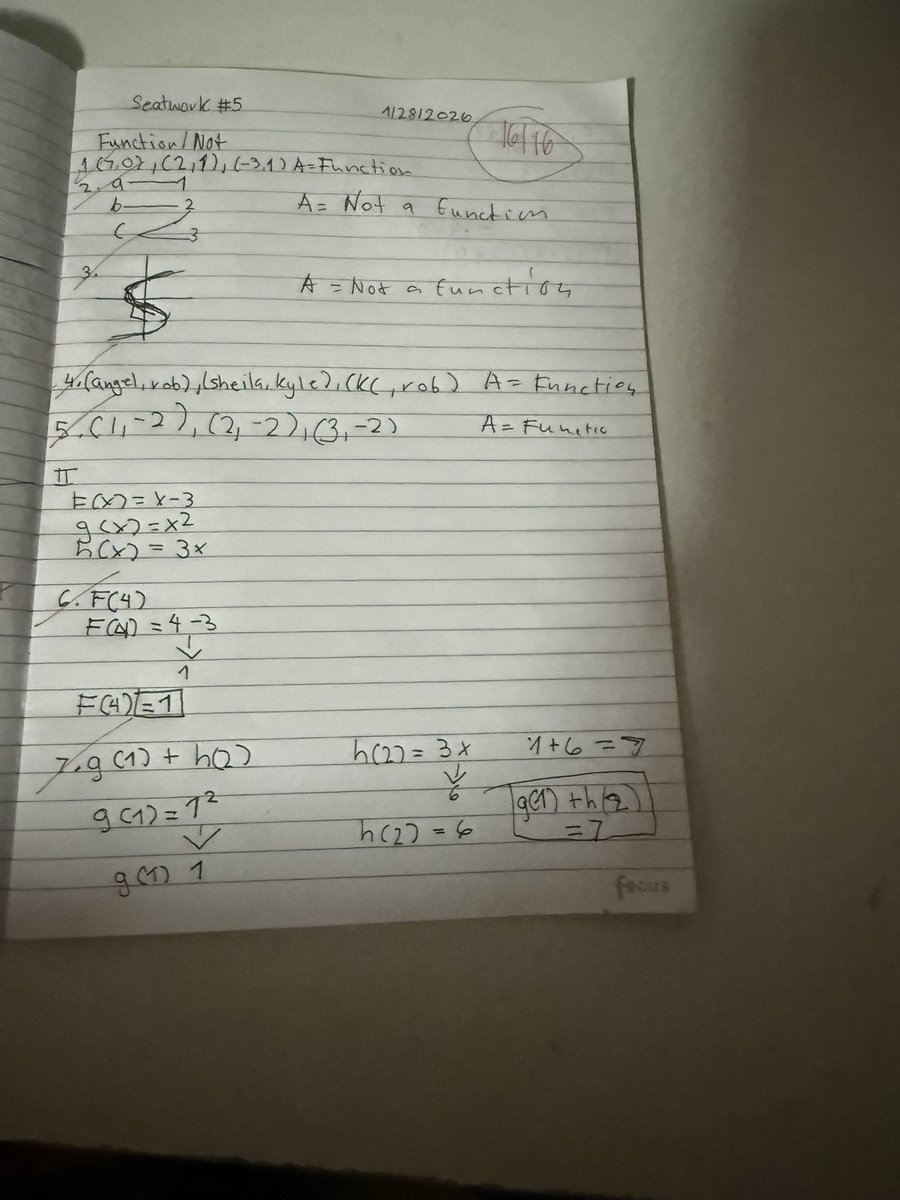 Seatwork #5 1/28/2026
16/16
Function/Not
1. (5,0), (2,1), (-3,1) A=Function
2. a 1
b 2 A= Not a function
c 3
3. A = Not a function
4. (angel, rob), (sheila, kyle), (KC, rob) A = Function
5. (1,-2), (2,-2), (3,-2) A= Functio
II
F(x) = x-3
g(x) = x2
h(x) = 3x
6. F(4)
F(4) = 4-3
1
F(4) = 1
7. g(1) + h(2) h(2) = 3x 1+6 = 7
6
g(1) = 1² g(1) + h(2)
h(2) = 6 = 7
g(1) 1
focus